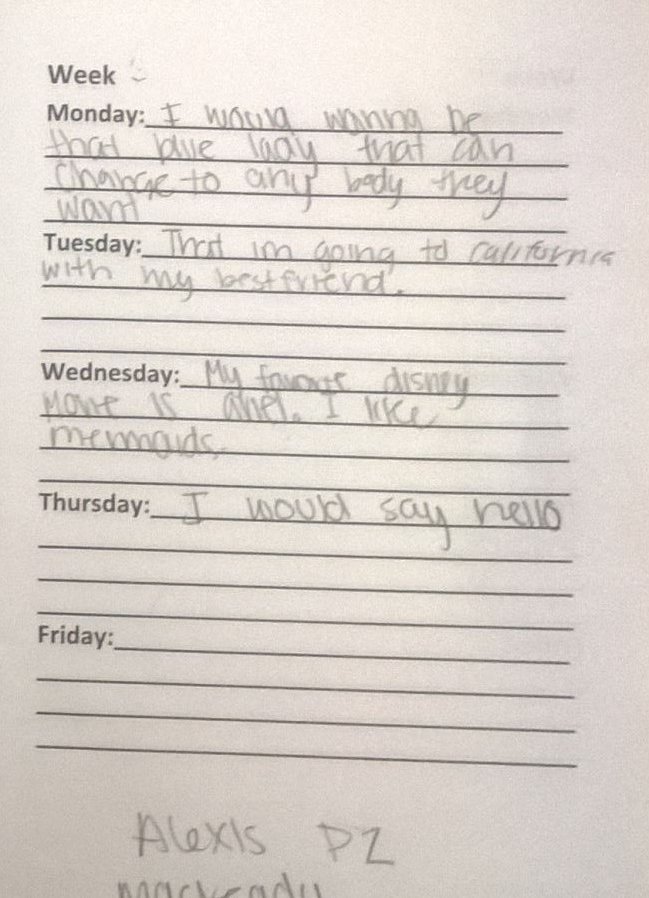 Week
Monday: I would wanna be
that blue lady that can
change to any body they
want
Tuesday: That im going to california
with my bestfriend.
Wednesday: My favorite disney
movie is ariel. I like
mermaids.
Thursday: I would say hello
Friday:
Alexis P2